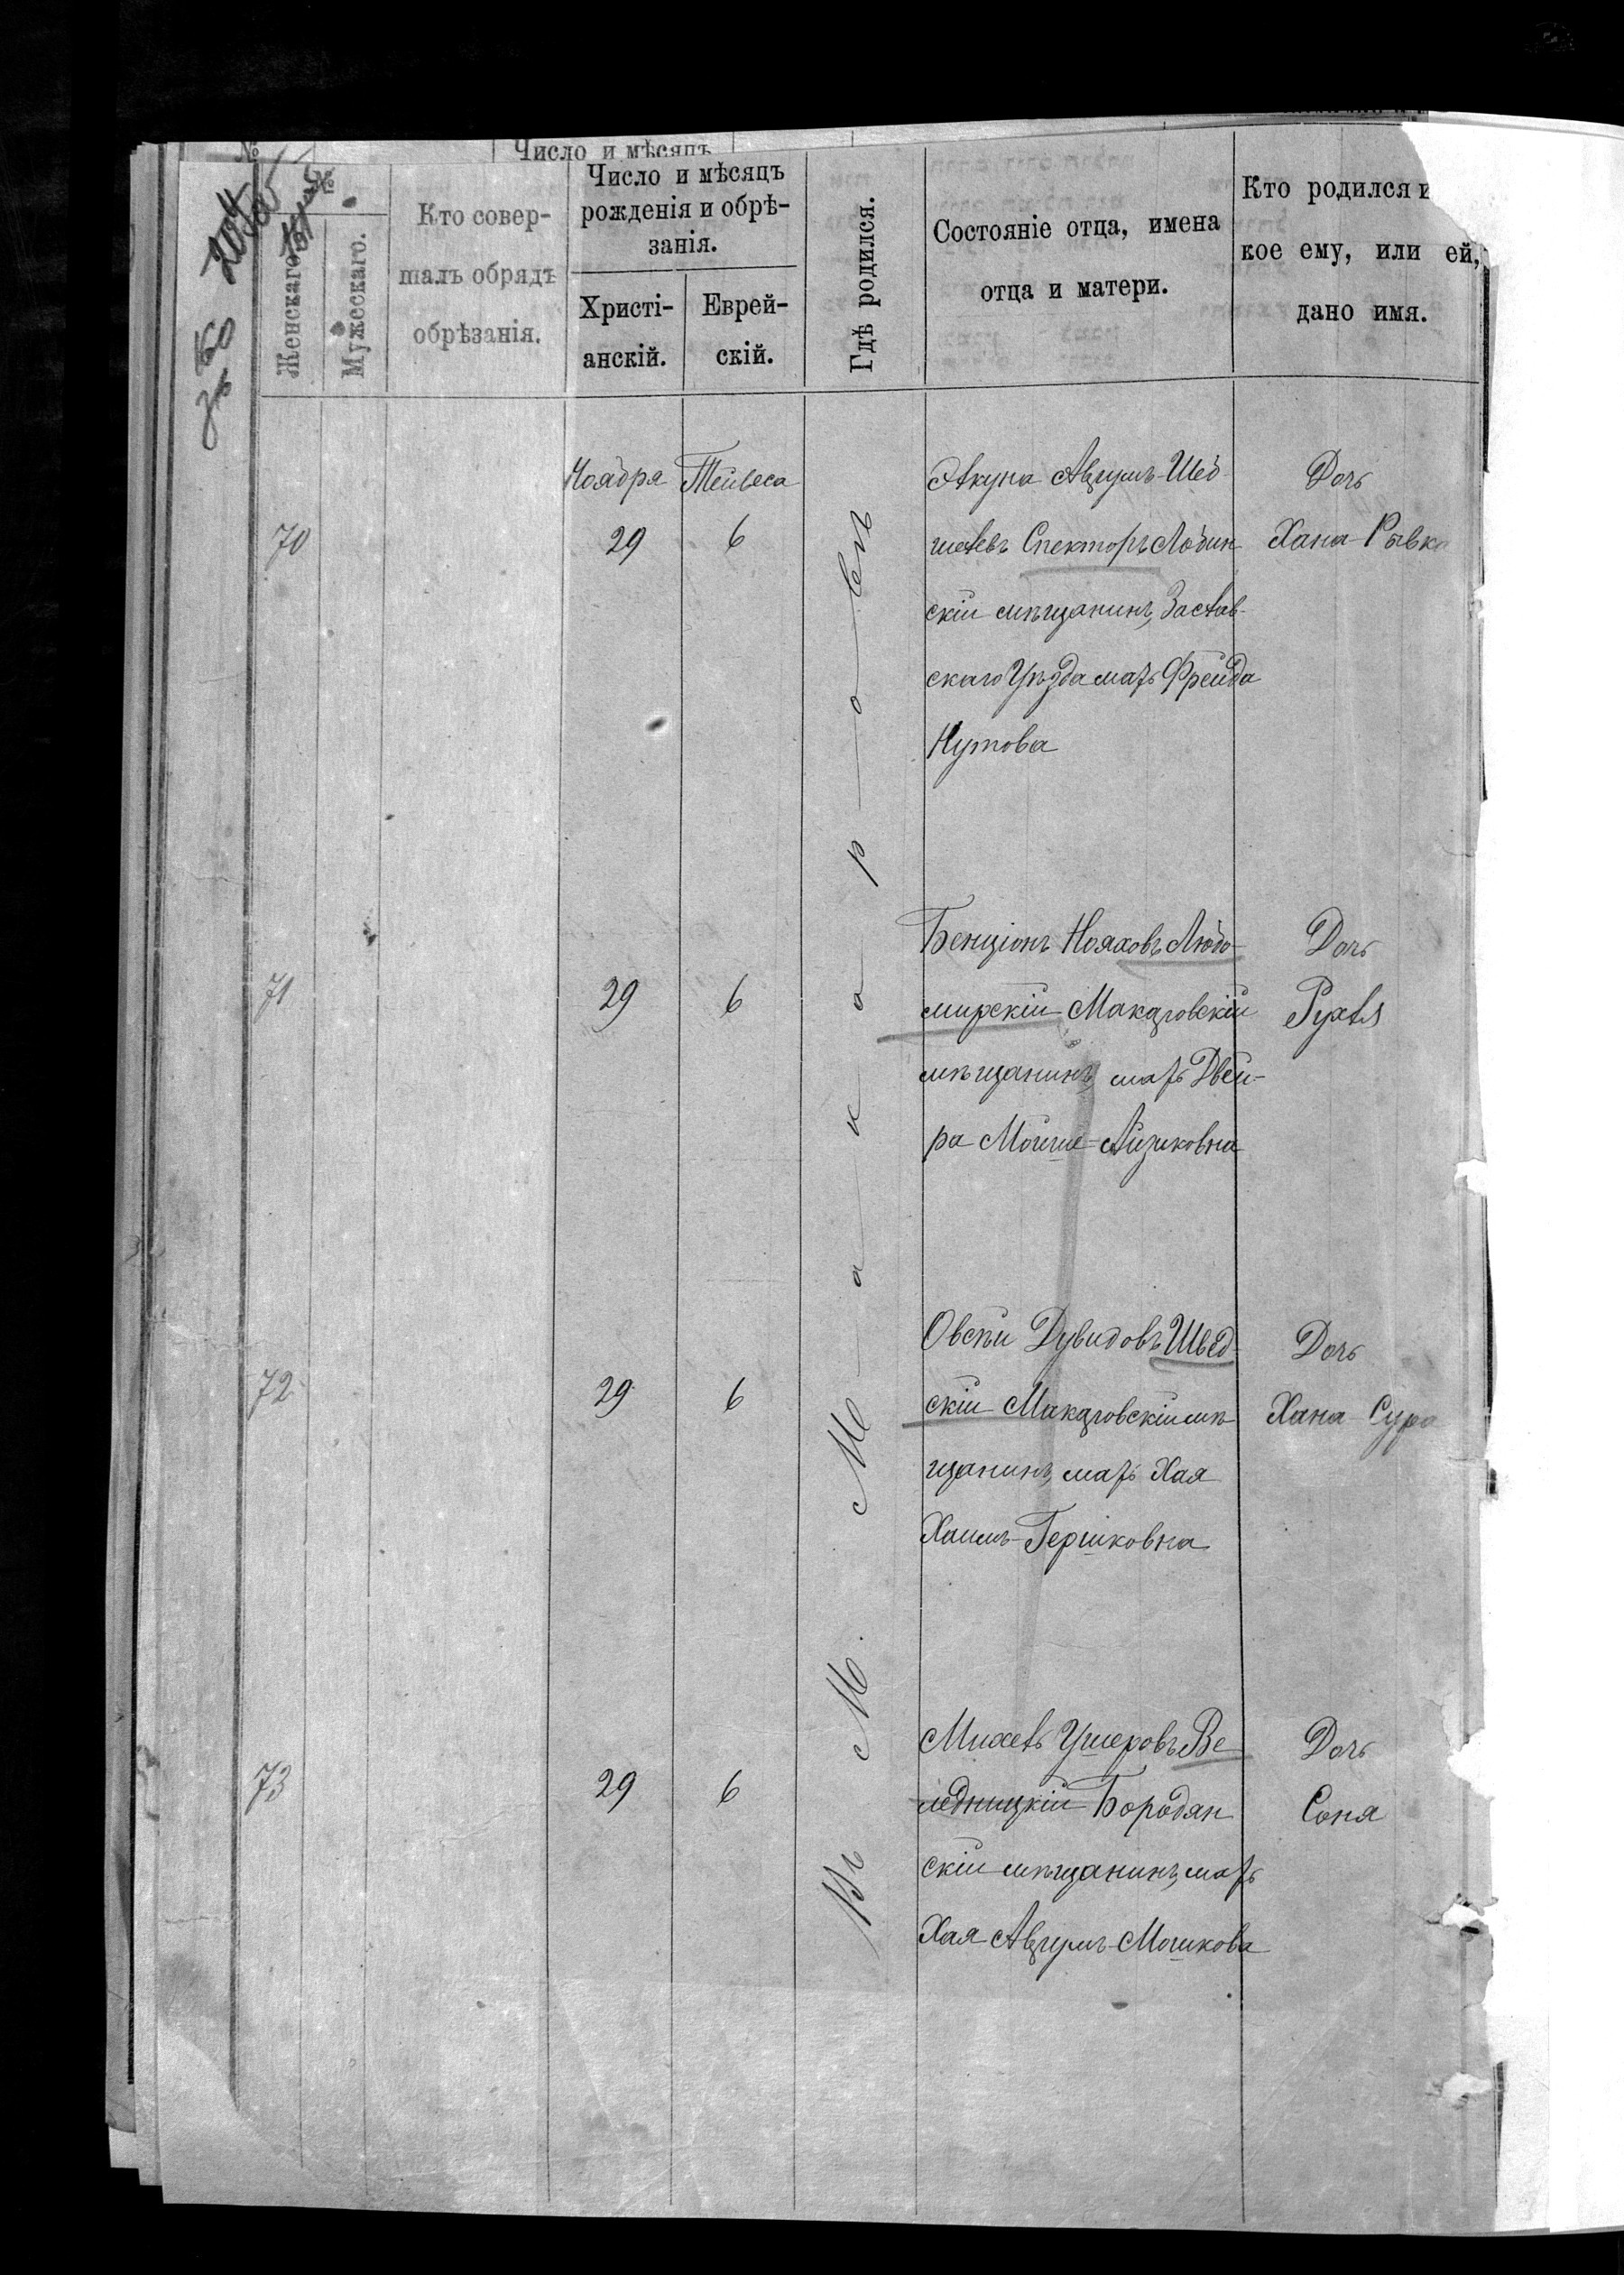 №
Число и мѣсяцъ
Женскаго.
Мужескаго.
Кто совер-
шалъ обрядъ
обрѣзанія.
Число и мѣсяцъ
рожденія и обрѣ-
занія.
Христі-
анскій.
Еврей-
скій.
Гдѣ родился.
Состояніе отца, имена
отца и матери.
Кто родился и
кое ему, или ей,
дано имя.
Въ М. Макаровѣ
Ноября Тейвеса
70 29 6
Спекторъ
скій мѣщанинъ, Заслав-
скаго Уѣзда мать Фрейда
Нутова
Дочь
Хана Рывка
71 29 6
Бенціонъ Нояховъ Любо-
мирскій Макаровскій
мѣщанинъ, мать Двей-
ра Мойше-Айзиковна
Дочь
Рухля
72 29 6
Овсѣй Дувидовъ Швед-
скій Макаровскій мѣ
щанинъ, мать Хая
Хаимъ-Гершковна
Дочь
Хана Сура
73 29 6
Михель Ушеровъ Ве
ледницкій Бородян
скій мѣщанинъ, мать
Хая Аврумъ-Мошкова
Дочь
Соня